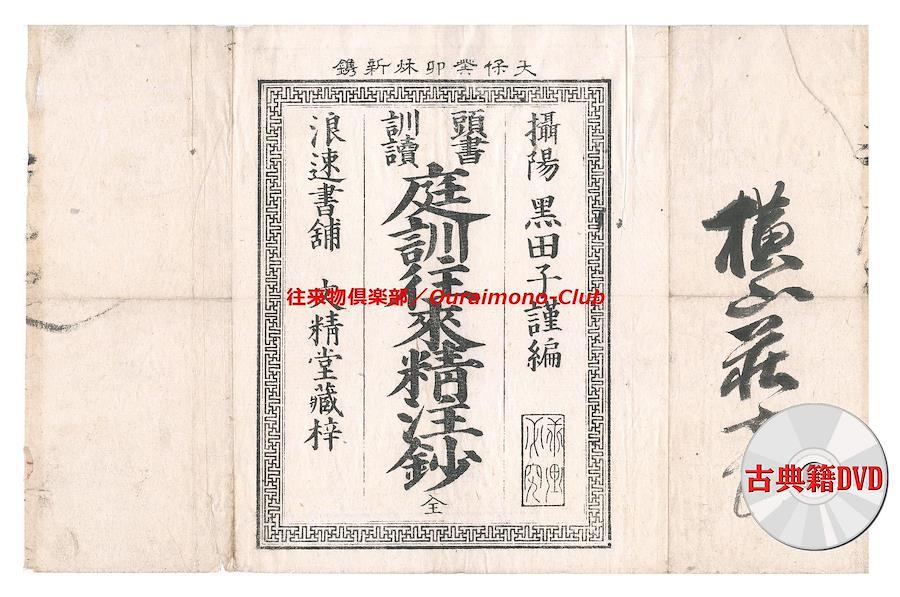 天保癸卯秌新鐫
攝陽 黒田子謹編
頭書
訓讀
庭訓往來精注鈔
全
浪速書舗 精堂藏梓
往来物倶楽部／Ouraimono-Club
横山荘
古典籍DVD